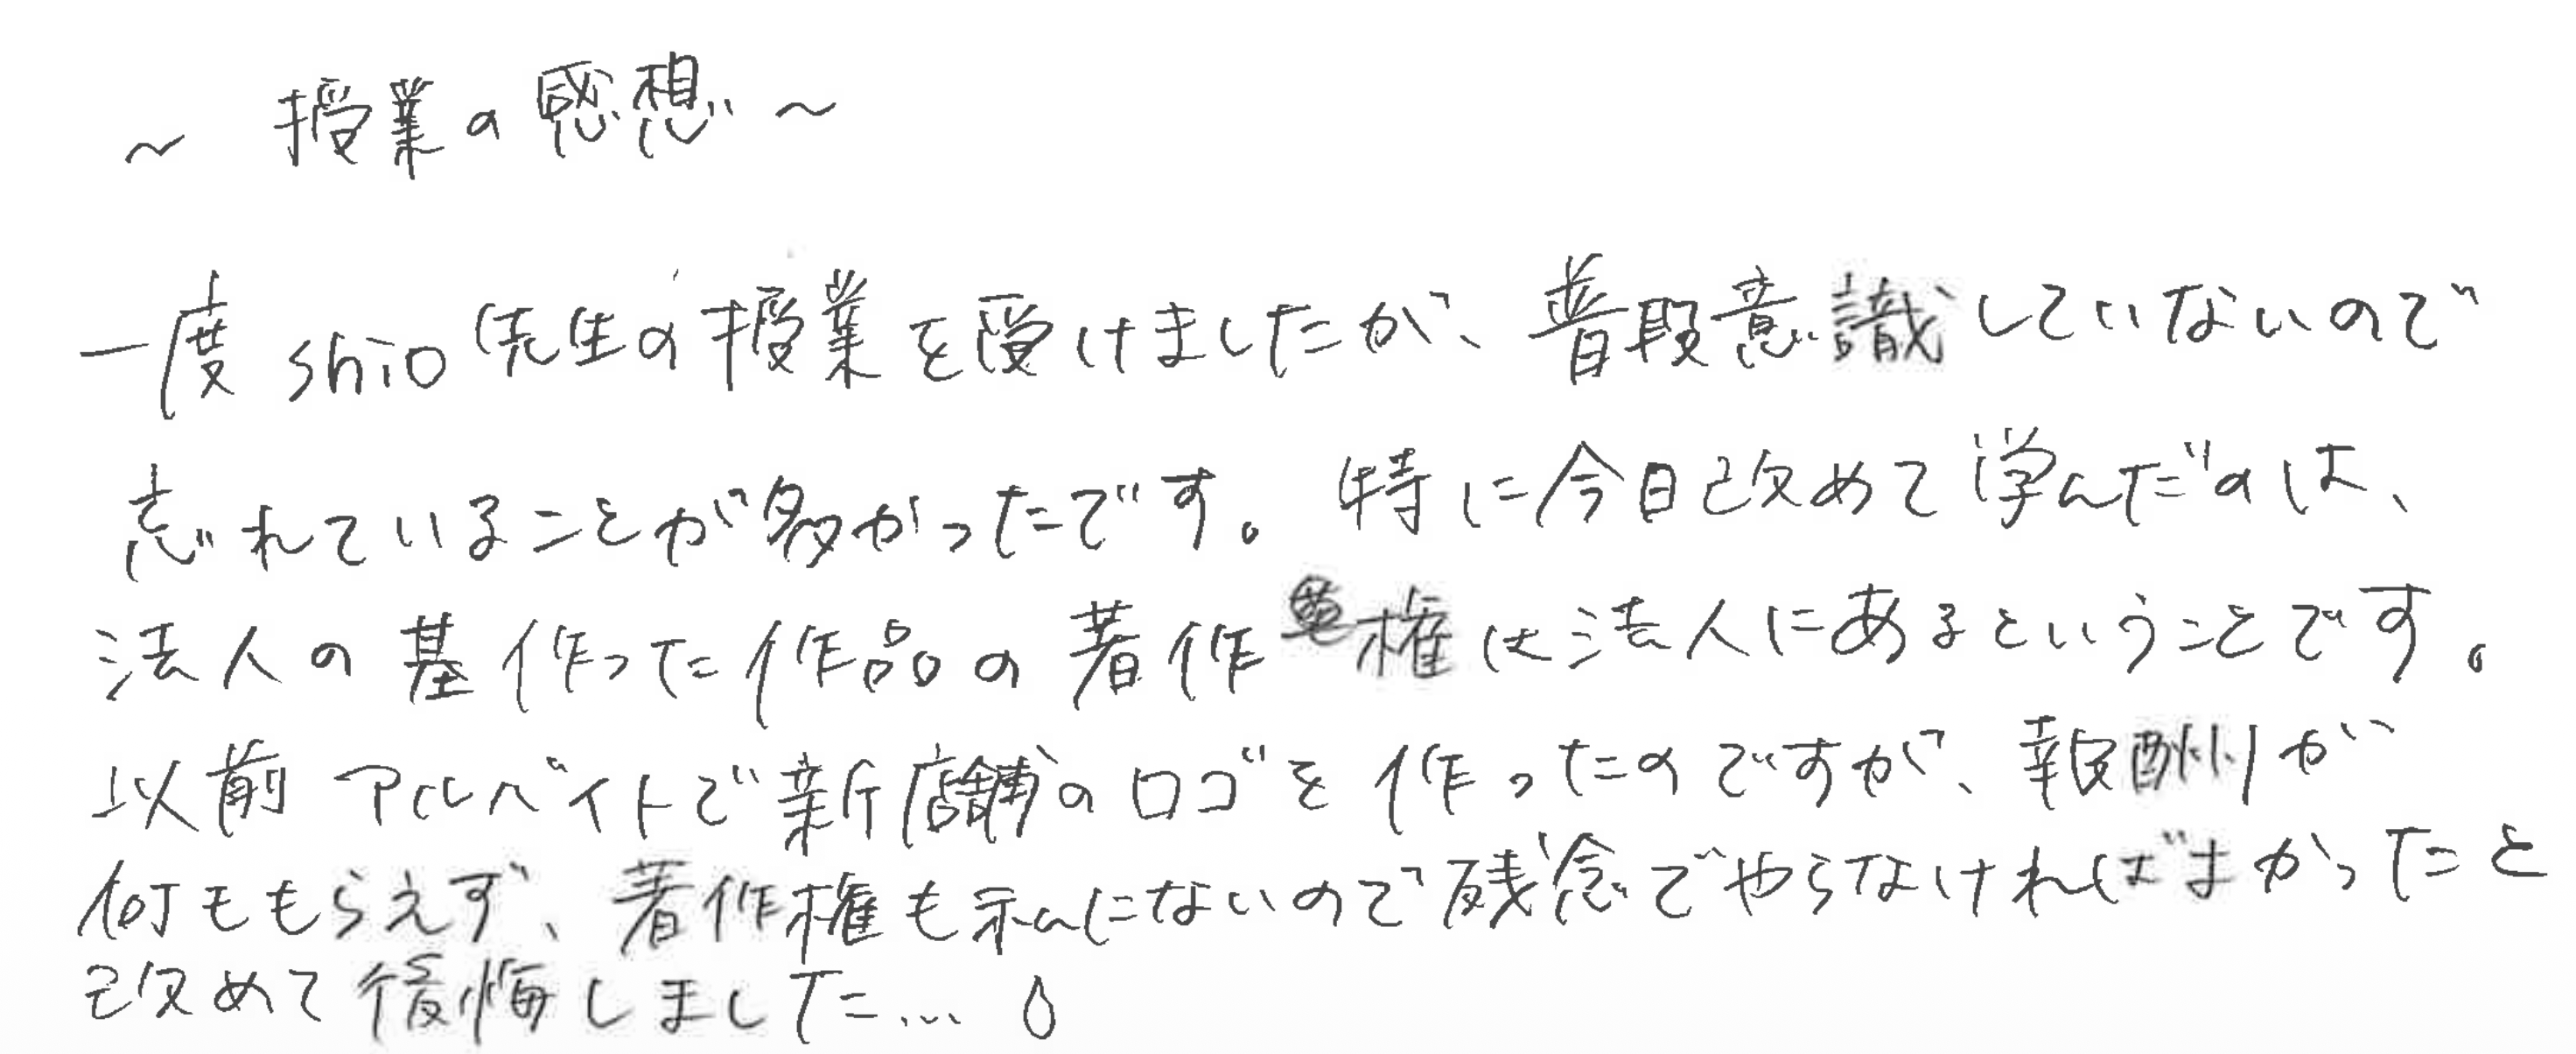 ～ 授業の感想 ～
一度shio先生の授業を受けましたが、普段意識していないので
忘れていることが多かったです。特に今日改めて学んだのは、
法人の基作った作品の著作権は法人にあるということです。
以前アルバイトで新店舗のロゴを作ったのですが、報酬が
何ももらえず、著作権も私にないので残念でやらなければよかったと
改めて後悔しました…